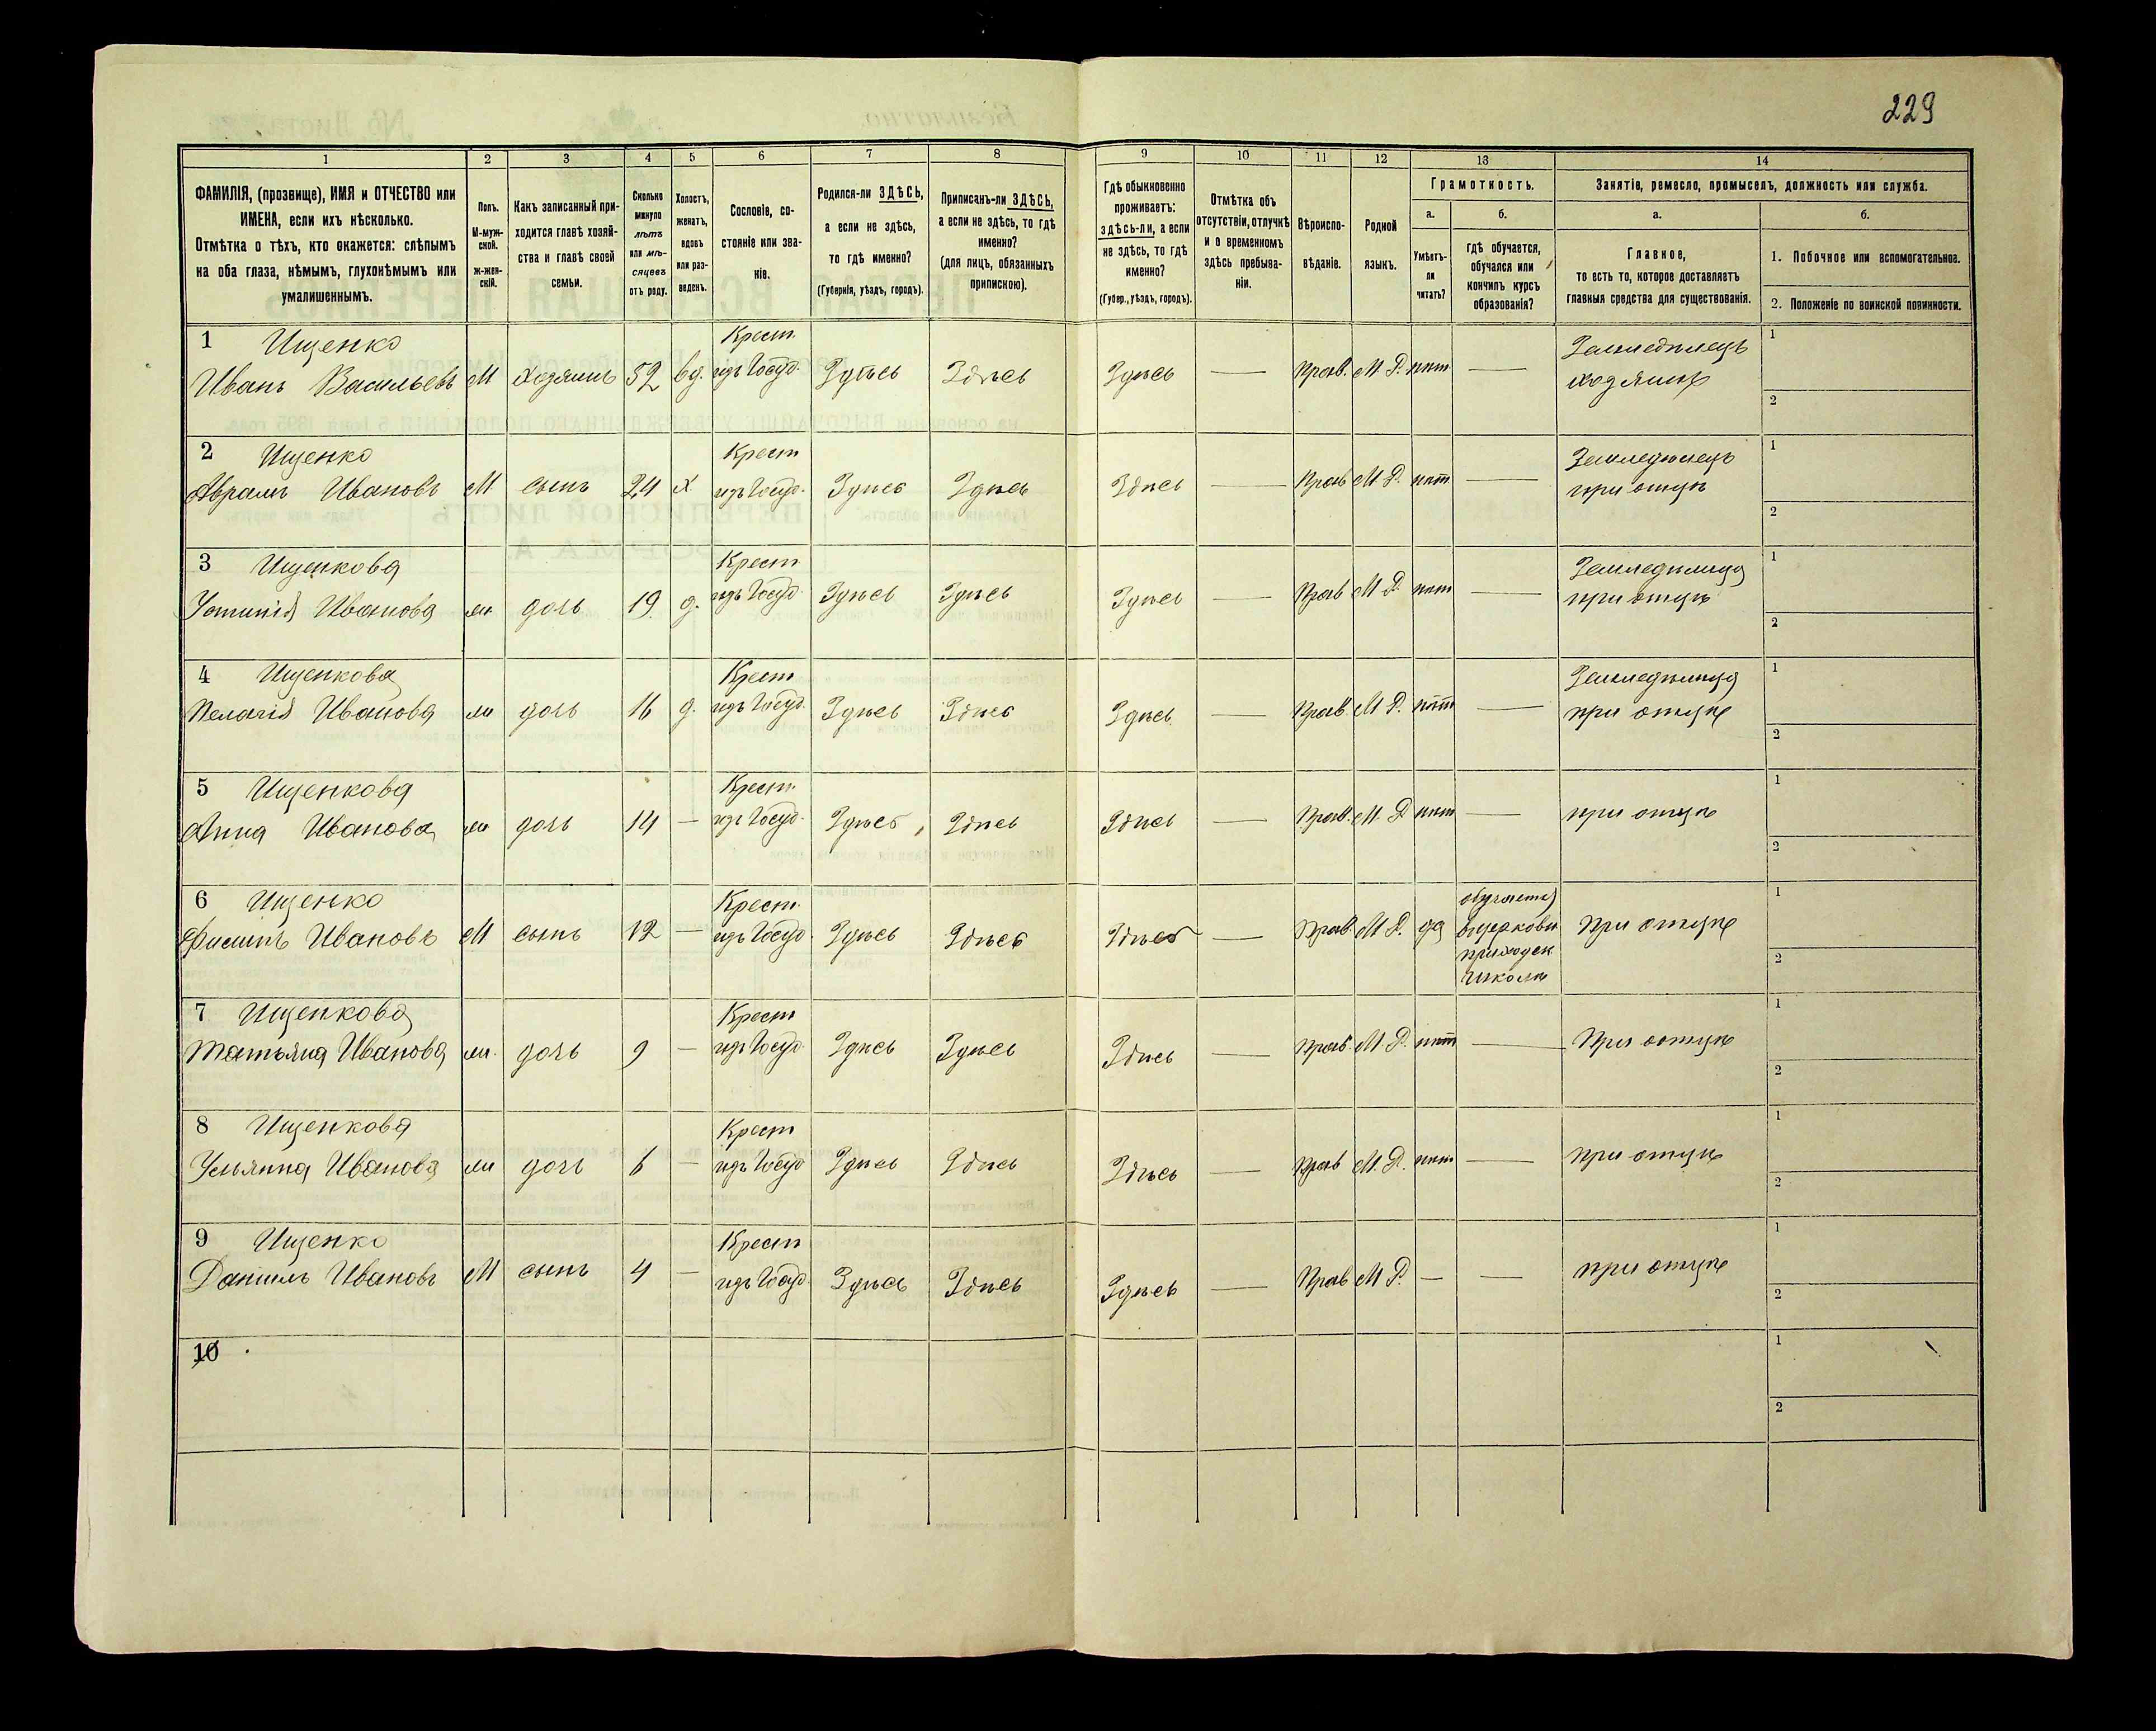 229
1 2 3 4 5 6 7 8 9 10 11 12 13 14
ФАМИЛІЯ, (прозвище), ИМЯ и ОТЧЕСТВО или
ИМЕНА, если ихъ нѣсколько.
Отмѣтка о тѣхъ, кто окажется: слѣпымъ
на оба глаза, нѣмымъ, глухонѣмымъ или
умалишеннымъ.
Полъ.
М-муж-
ской.
ж-жен-
скій.
Какъ записанный при-
ходится главѣ хозяй-
ства и главѣ своей
семьи.
Сколько
минуло
лѣтъ
или мѣ-
сяцевъ
отъ роду.
Холостъ,
женатъ,
вдовъ
или раз-
веденъ.
Сословіе, со-
стояніе или зва-
ніе.
Родился-ли ЗДѢСЬ,
а если не здѣсь,
то гдѣ именно?
(Губернія, уѣздъ, городъ).
Приписанъ-ли ЗДѢСЬ,
а если не здѣсь, то гдѣ
именно?
(для лицъ, обязанныхъ
припискою).
Гдѣ обыкновенно
проживаетъ:
здѣсь-ли, а если
не здѣсь, то гдѣ
именно?
(Губер., уѣздъ, городъ).
Отмѣтка объ
отсутствіи, отлучкѣ
и о временномъ
здѣсь пребыва-
ніи.
Вѣроиспо-
вѣданіе.
Родной
языкъ.
Грамотность.
а.
Умѣетъ-
ли
читать?
б.
гдѣ обучается,
обучался или
кончилъ курсъ
образованія?
Занятіе, ремесло, промыселъ, должность или служба.
а.
Главное,
то есть то, которое доставляетъ
главныя средства для существованія.
б.
1. Побочное или вспомогательное.
2. Положеніе по воинской повинности.
1 Ищенко Крест. Земледѣлецъ 1
Иванъ Васильевъ М Хозяинъ 52 вд. Здѣсь Здѣсь Здѣсь — Прав. М. Р. нѣт — хозяинъ
2
2 Ищенко Крест Земледѣлецъ 1
Абрамъ Ивановъ М сынъ 24 х Здѣсь Здѣсь Здѣсь — Прав М. Р. нѣт — при отцѣ
2
3 Ищенкова Крест 1
Устинія Иванова ж дочь 19 д. Здѣсь Здѣсь Здѣсь — Прав М Р. нѣт — при отцѣ
2
4 Ищенкова Крест 1
Пелагія Иванова ж дочь 16 д. Здѣсь Здѣсь Здѣсь — Прав М. Р. нѣт — при отцѣ
2
5 Ищенкова Крест. 1
Анна Иванова ж дочь 14 — Здѣсь Здѣсь Здѣсь — Прав. М. Р нѣт — при отцѣ
2
6 Ищенко Крест. обучается 1
Филипъ Ивановъ М сынъ 12 — Здѣсь Здѣсь Здѣсь — Прав. М Р. да вцерковн при отцѣ
приходск 2
школѣ
7 Ищенкова Крест 1
Татьяна Иванова ж. дочь 9 — Здѣсь Здѣсь Здѣсь — Прав. М. Р. нѣт — При отцѣ
2
8 Ищенкова Крест 1
Ульянна Иванова ж дочь 6 — Здѣсь Здѣсь Здѣсь — Прав М. Р. нѣт — при отцѣ
2
9 Ищенко Крест 1
Даніилъ Ивановъ М сынъ 4 — Здѣсь Здѣсь Здѣсь — Прав М Р. — — при отцѣ
2
10 1
2